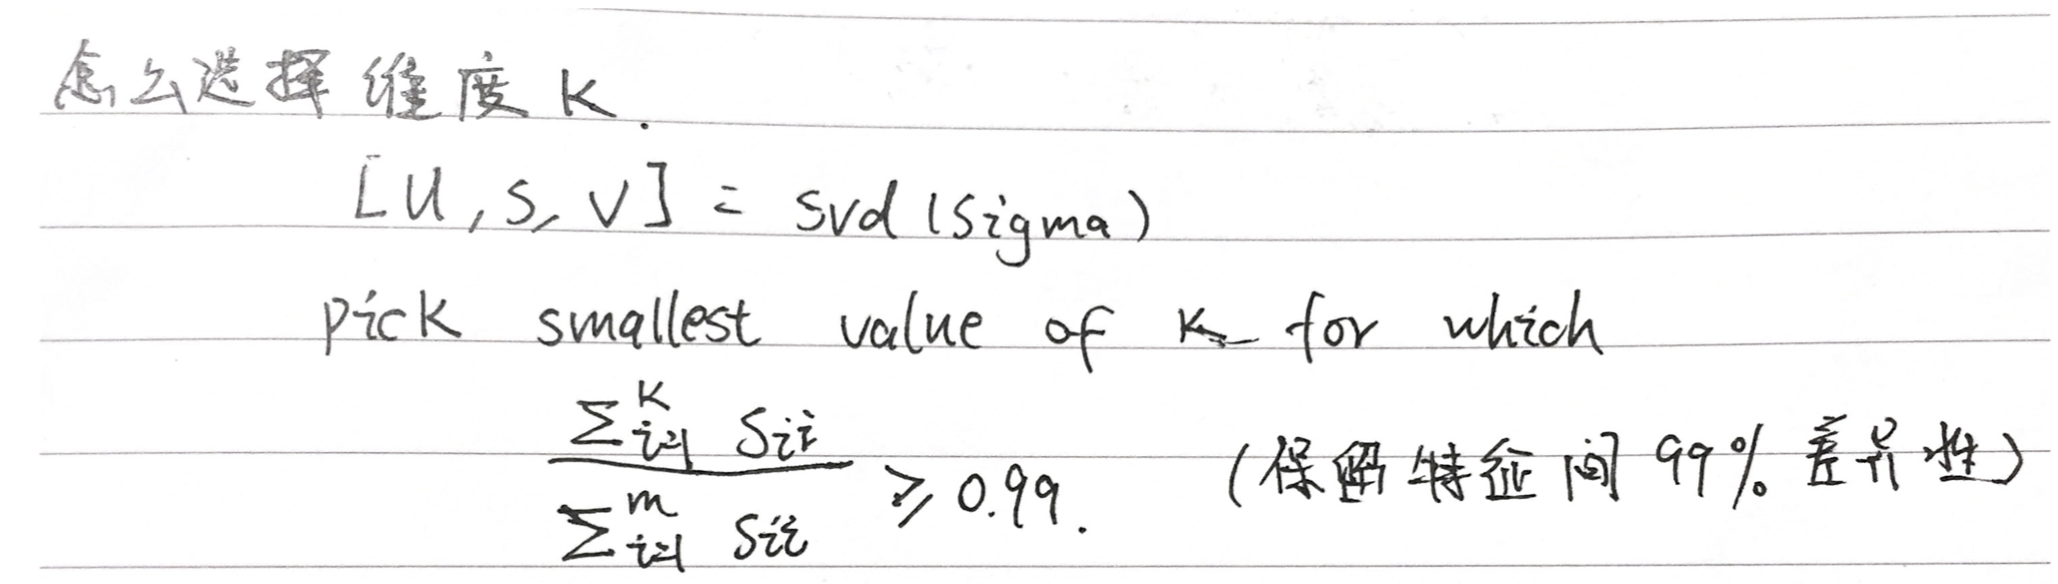 怎么选择维度 K.
[U, S, V] = svd(Sigma)
pick smallest value of K for which
\frac{\sum_{i=1}^{K} S_{ii}}{\sum_{i=1}^{m} S_{ii}} ⩾ 0.99. (保留特征间 99% 差异性)